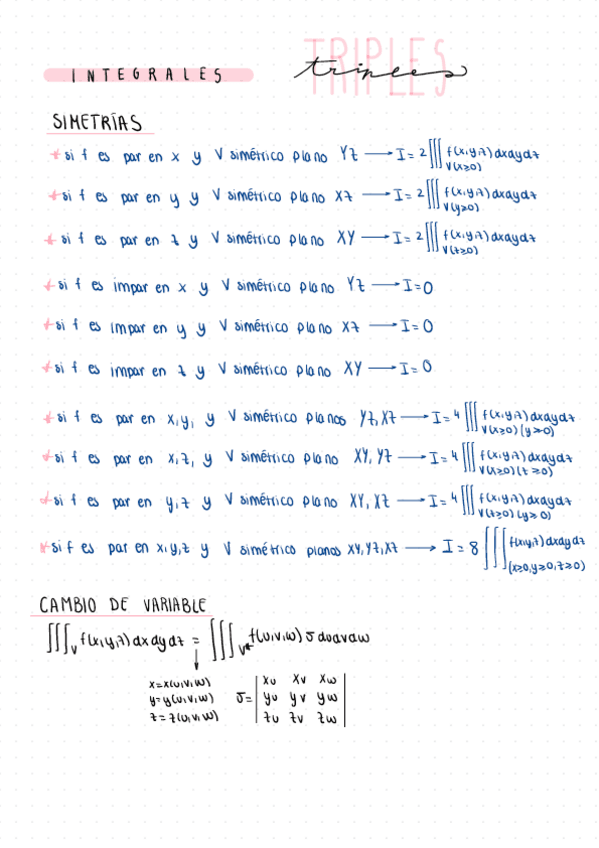 INTEGRALES TRIPLES triples
SIMETRÍAS
* si f es par en x y V simétrico plano YZ → I = 2 ∭ f(x,y,z) dxdydz
V(x≥0)
* si f es par en y y V simétrico plano XZ → I = 2 ∭ f(x,y,z) dxdydz
V(y≥0)
* si f es par en z y V simétrico plano XY → I = 2 ∭ f(x,y,z) dxdydz
V(z≥0)
* si f es impar en x y V simétrico plano YZ → I = 0
* si f es impar en y y V simétrico plano XZ → I = 0
* si f es impar en z y V simétrico plano XY → I = 0
* si f es par en x,y, y V simétrico planos YZ, XZ → I = 4 ∭ f(x,y,z) dxdydz
V(x≥0)(y≥0)
* si f es par en x,z, y V simétrico plano XY, YZ → I = 4 ∭ f(x,y,z) dxdydz
V(x≥0)(z≥0)
* si f es par en y,z y V simétrico plano XY, XZ → I = 4 ∭ f(x,y,z) dxdydz
V(z≥0)(y≥0)
* si f es par en x,y,z y V simétrico planos XY, YZ, XZ → I = 8 ∭ f(x,y,z) dxdydz
(x≥0, y≥0, z≥0)
CAMBIO DE VARIABLE
∭_V f(x,y,z) dx dy dz = ∭_V* f(u,v,w) J dudvdw
x = x(u,v,w)
y = y(u,v,w)
z = z(u,v,w)
J = | xu xv xw |
| yu yv yw |
| zu zv zw |